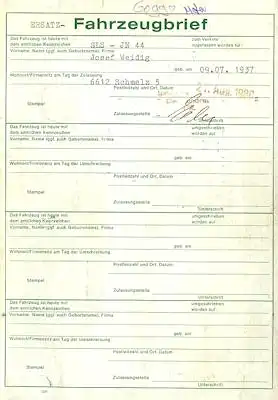 Goggo
ERSATZ- Fahrzeugbrief
Das Fahrzeug ist heute mit dem amtlichen Kennzeichen SLS - JN 44 zum Verkehr zugelassen worden für:
Vorname, Name (ggf. auch Geburtsname), Firma
Josef Weidig
geb. am 09.07.1937
Wohnort/Firmensitz am Tag der Zulassung
6612 Schmelz 5
Postleitzahl und Ort, Datum
Stempel
Zulassungsstelle
Das Fahrzeug ist heute mit dem amtlichen Kennzeichen umgeschrieben worden auf:
Vorname, Name (ggf. auch Geburtsname), Firma
geb. am
Wohnort/Firmensitz am Tag der Umschreibung
Postleitzahl und Ort, Datum
Stempel
Zulassungsstelle
Unterschrift
Das Fahrzeug ist heute mit dem amtlichen Kennzeichen umgeschrieben worden auf:
Vorname, Name (ggf. auch Geburtsname), Firma
geb. am
Wohnort/Firmensitz am Tag der Umschreibung
Postleitzahl und Ort, Datum
Stempel
Zulassungsstelle
Unterschrift
Das Fahrzeug ist heute mit dem amtlichen Kennzeichen umgeschrieben worden auf:
Vorname, Name (ggf. auch Geburtsname), Firma
geb. am
Wohnort/Firmensitz am Tag der Umschreibung
Postleitzahl und Ort, Datum
Stempel
Zulassungsstelle
Unterschrift